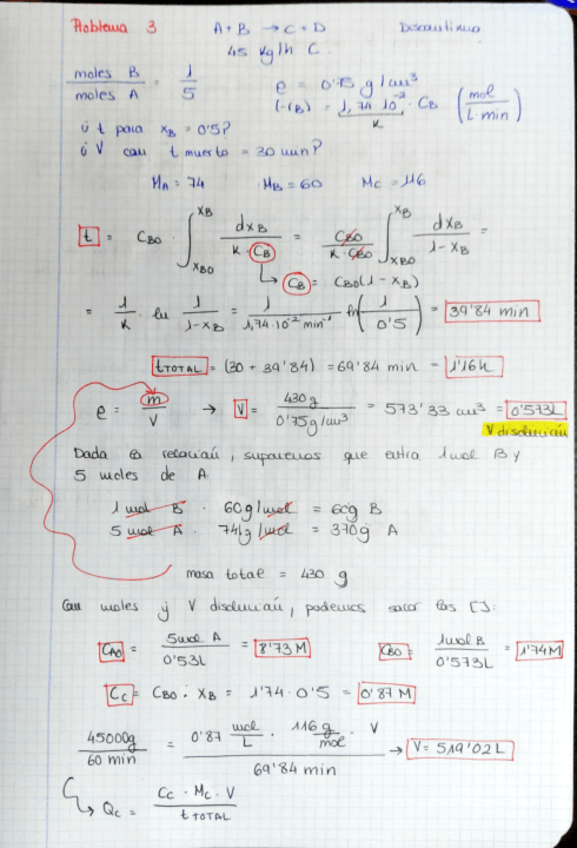 Problema 3 A + B → C + D Discontinuo
45 Kg/h C.
moles B / moles A = 1/5 ρ = 0'75 g/cm³
(-rB) = 1,74·10⁻² · CB (mol / L·min)
K
¿ t para xB = 0'5?
¿ V con t muerto = 30 min?
MA = 74 MB = 60 MC = 116
t = CBO · ∫ XBO XB dxB / K·CB = CBO / K·CBO ∫ XBO XB dxB / 1-XB =
↳ CB = CBO(1-XB)
= 1/K · ln 1/1-XB = 1 / 1,74·10⁻² min⁻¹ ln(1/0'5) = 39'84 min
tTOTAL = (30 + 39'84) = 69'84 min = 1'16h
ρ = m/V → V = 430g / 0'75g/cm³ = 573'33 cm³ = 0'573L
V disolución
Dada la relación, suponemos que entra 1 mol B y
5 moles de A.
1 mol B · 60g/mol = 60g B
5 mol A · 74g/mol = 370g A
masa total = 430 g
Con moles y V disolución, podemos sacar las []:
CAO = 5mol A / 0'53L = 8'73 M CBO = 1mol B / 0'573L = 1'74M
CC = CBO · XB = 1'74 · 0'5 = 0'87 M
45000g / 60 min = 0'87 mol/L · 116 g/mol · V / 69'84 min → V = 519'02L
↳ QC = CC · MC · V / tTOTAL